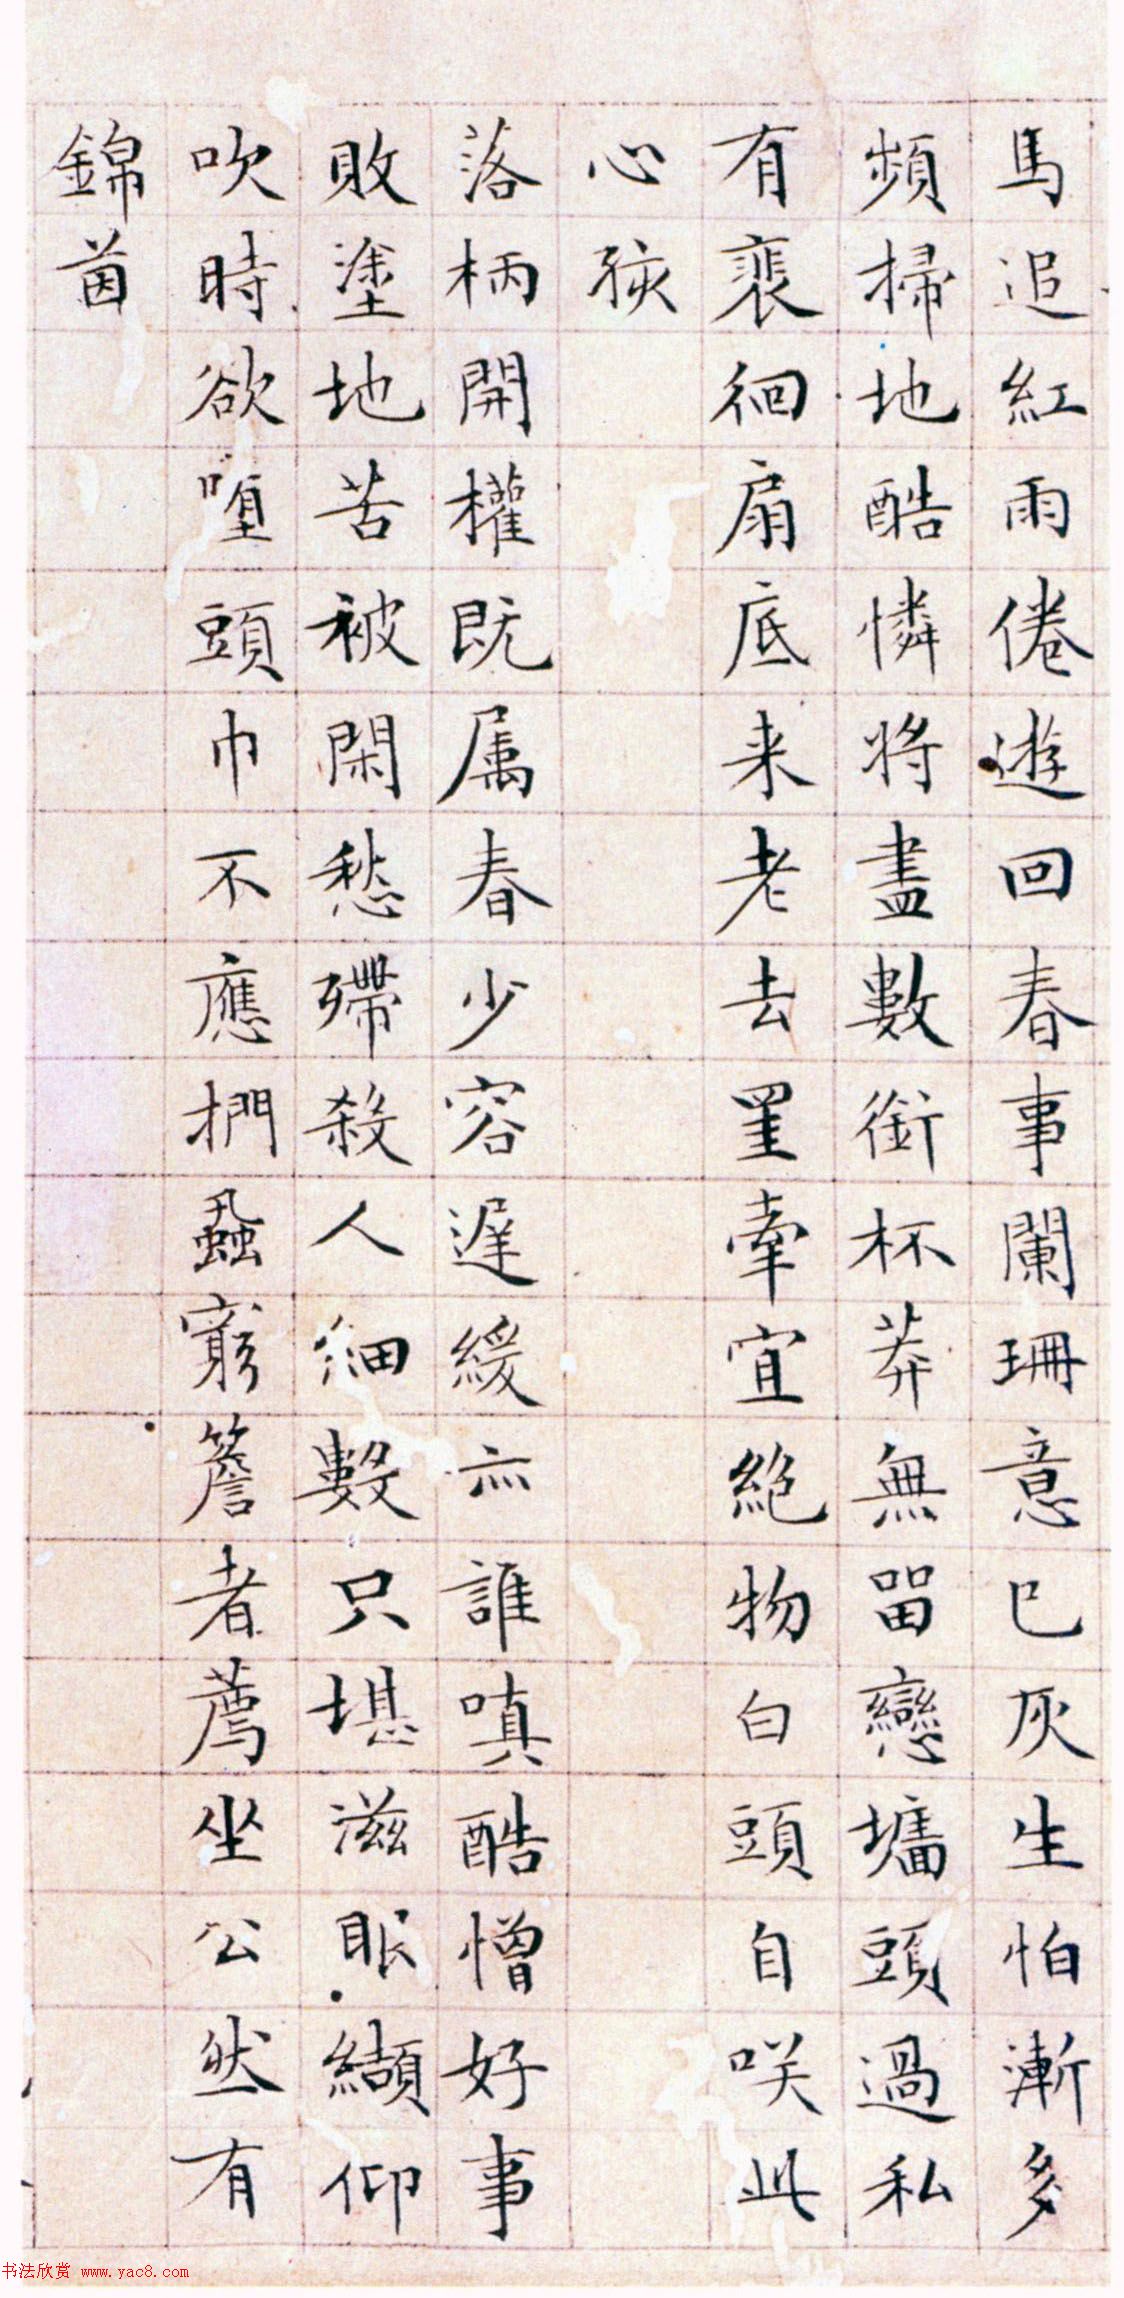 馬追紅雨倦遊回春事闌珊意已灰生怕漸多
頻掃地酷憐將盡數銜杯莽無留戀墻頭過私
有裴徊扇底来老去罣牽宜絶物白頭自咲此
心孩
落柄開權既属春少容遲緩亦誰嗔酷憎好事
敗塗地苦被閑愁殢殺人細數只堪滋眼纈仰
吹時欲墮頭巾不應捫蝨窮簷者薦坐公然有
錦茵
书法欣赏 www.yac8.com